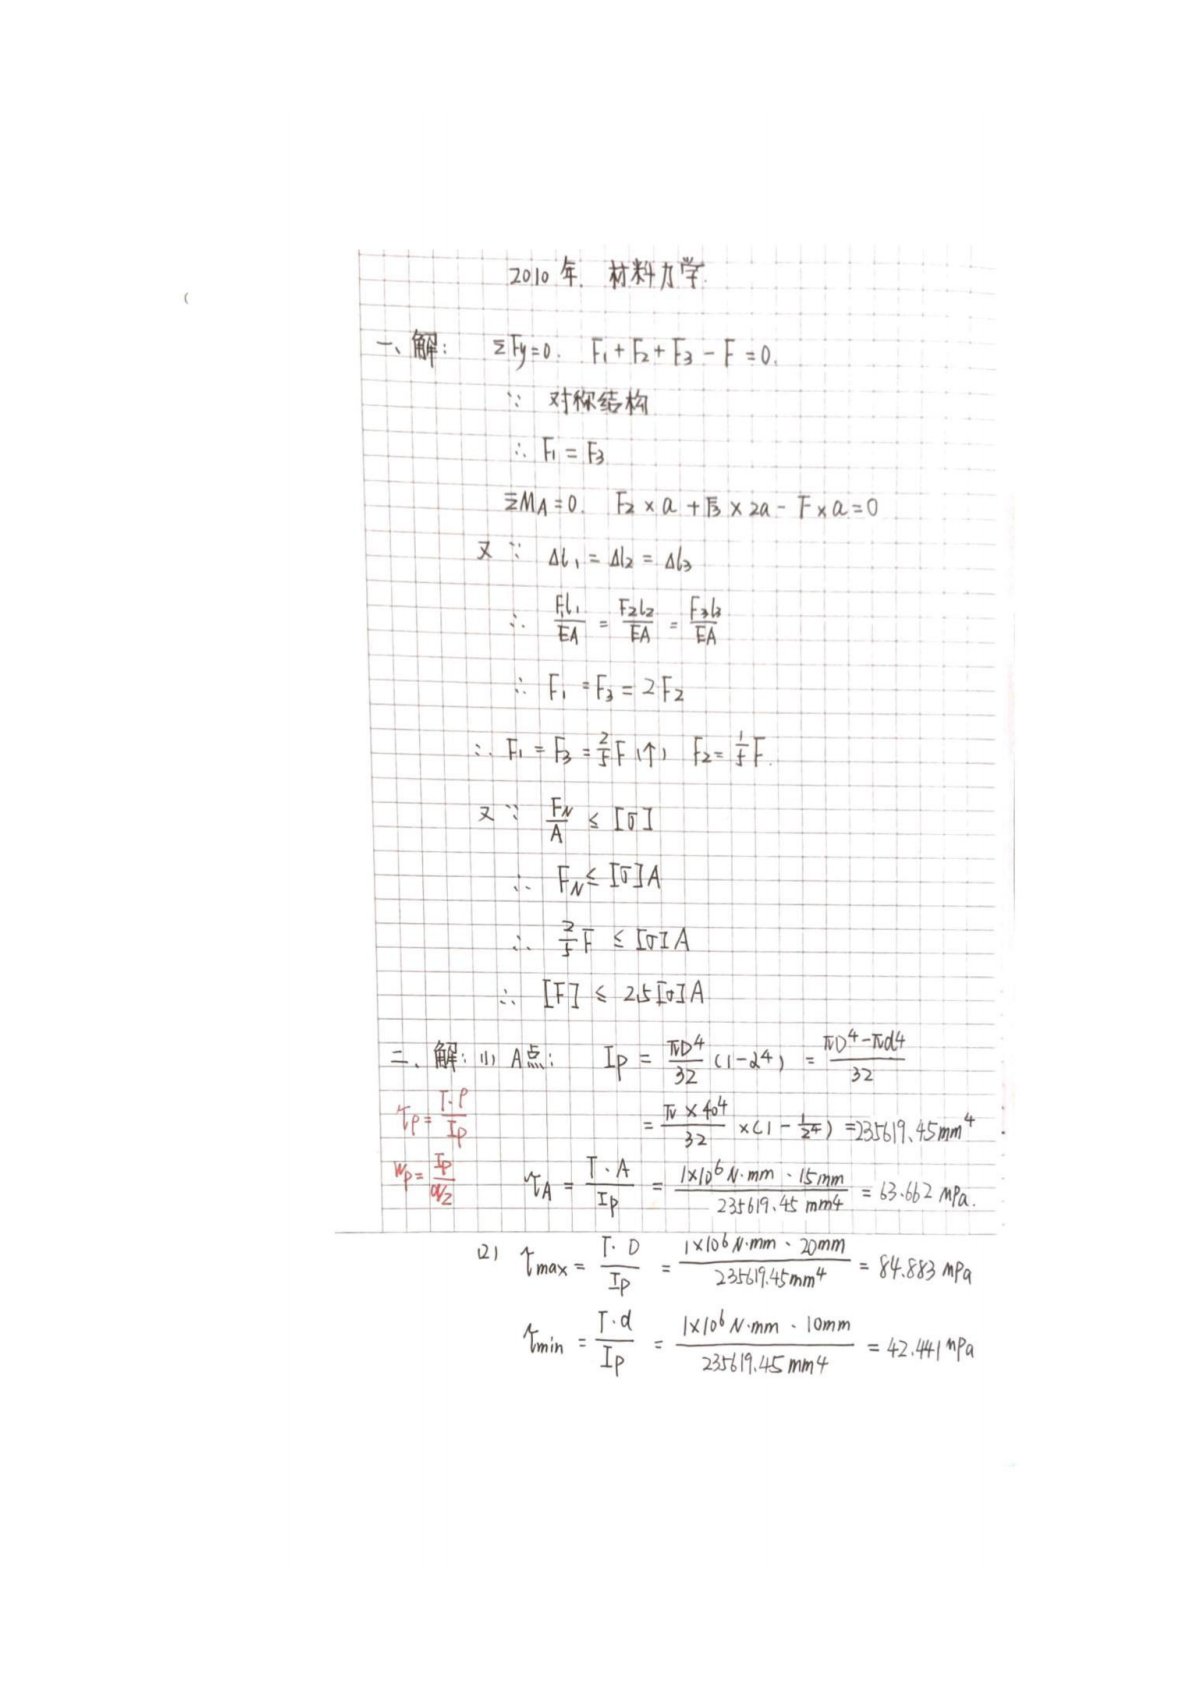 2010年. 材料力学.
一、解: ΣFy=0. F₁+F₂+F₃-F=0.
∵ 对称结构
∴ F₁=F₃
ΣMA=0. F₂×a+F₃×2a-F×a=0
又∵ Δl₁=Δl₂=Δl₃
∴ F₁l₁/EA = F₂l₂/EA = F₃l₃/EA
∴ F₁=F₃=2F₂
∴ F₁=F₃=2/5F(↑) F₂=1/5F.
又∵ FN/A ≤ [σ]
∴ FN≤[σ]A
∴ 2/5F ≤ [σ]A
∴ [F] ≤ 2.5[σ]A
二、解: (1) A点: Ip = πD⁴/32 (1-α⁴) = πD⁴-πd⁴/32
τρ = T·ρ/Ip = π×40⁴/32 ×(1-1/2⁴) =235619.45mm⁴
Wp = Ip/d/2 τA = T·A/Ip = 1×10⁶N·mm·15mm/235619.45mm⁴ = 63.662 MPa.
(2) τmax = T·D/Ip = 1×10⁶N·mm·20mm/235619.45mm⁴ = 84.883 MPa
τmin = T·d/Ip = 1×10⁶N·mm·10mm/235619.45mm⁴ = 42.441 MPa